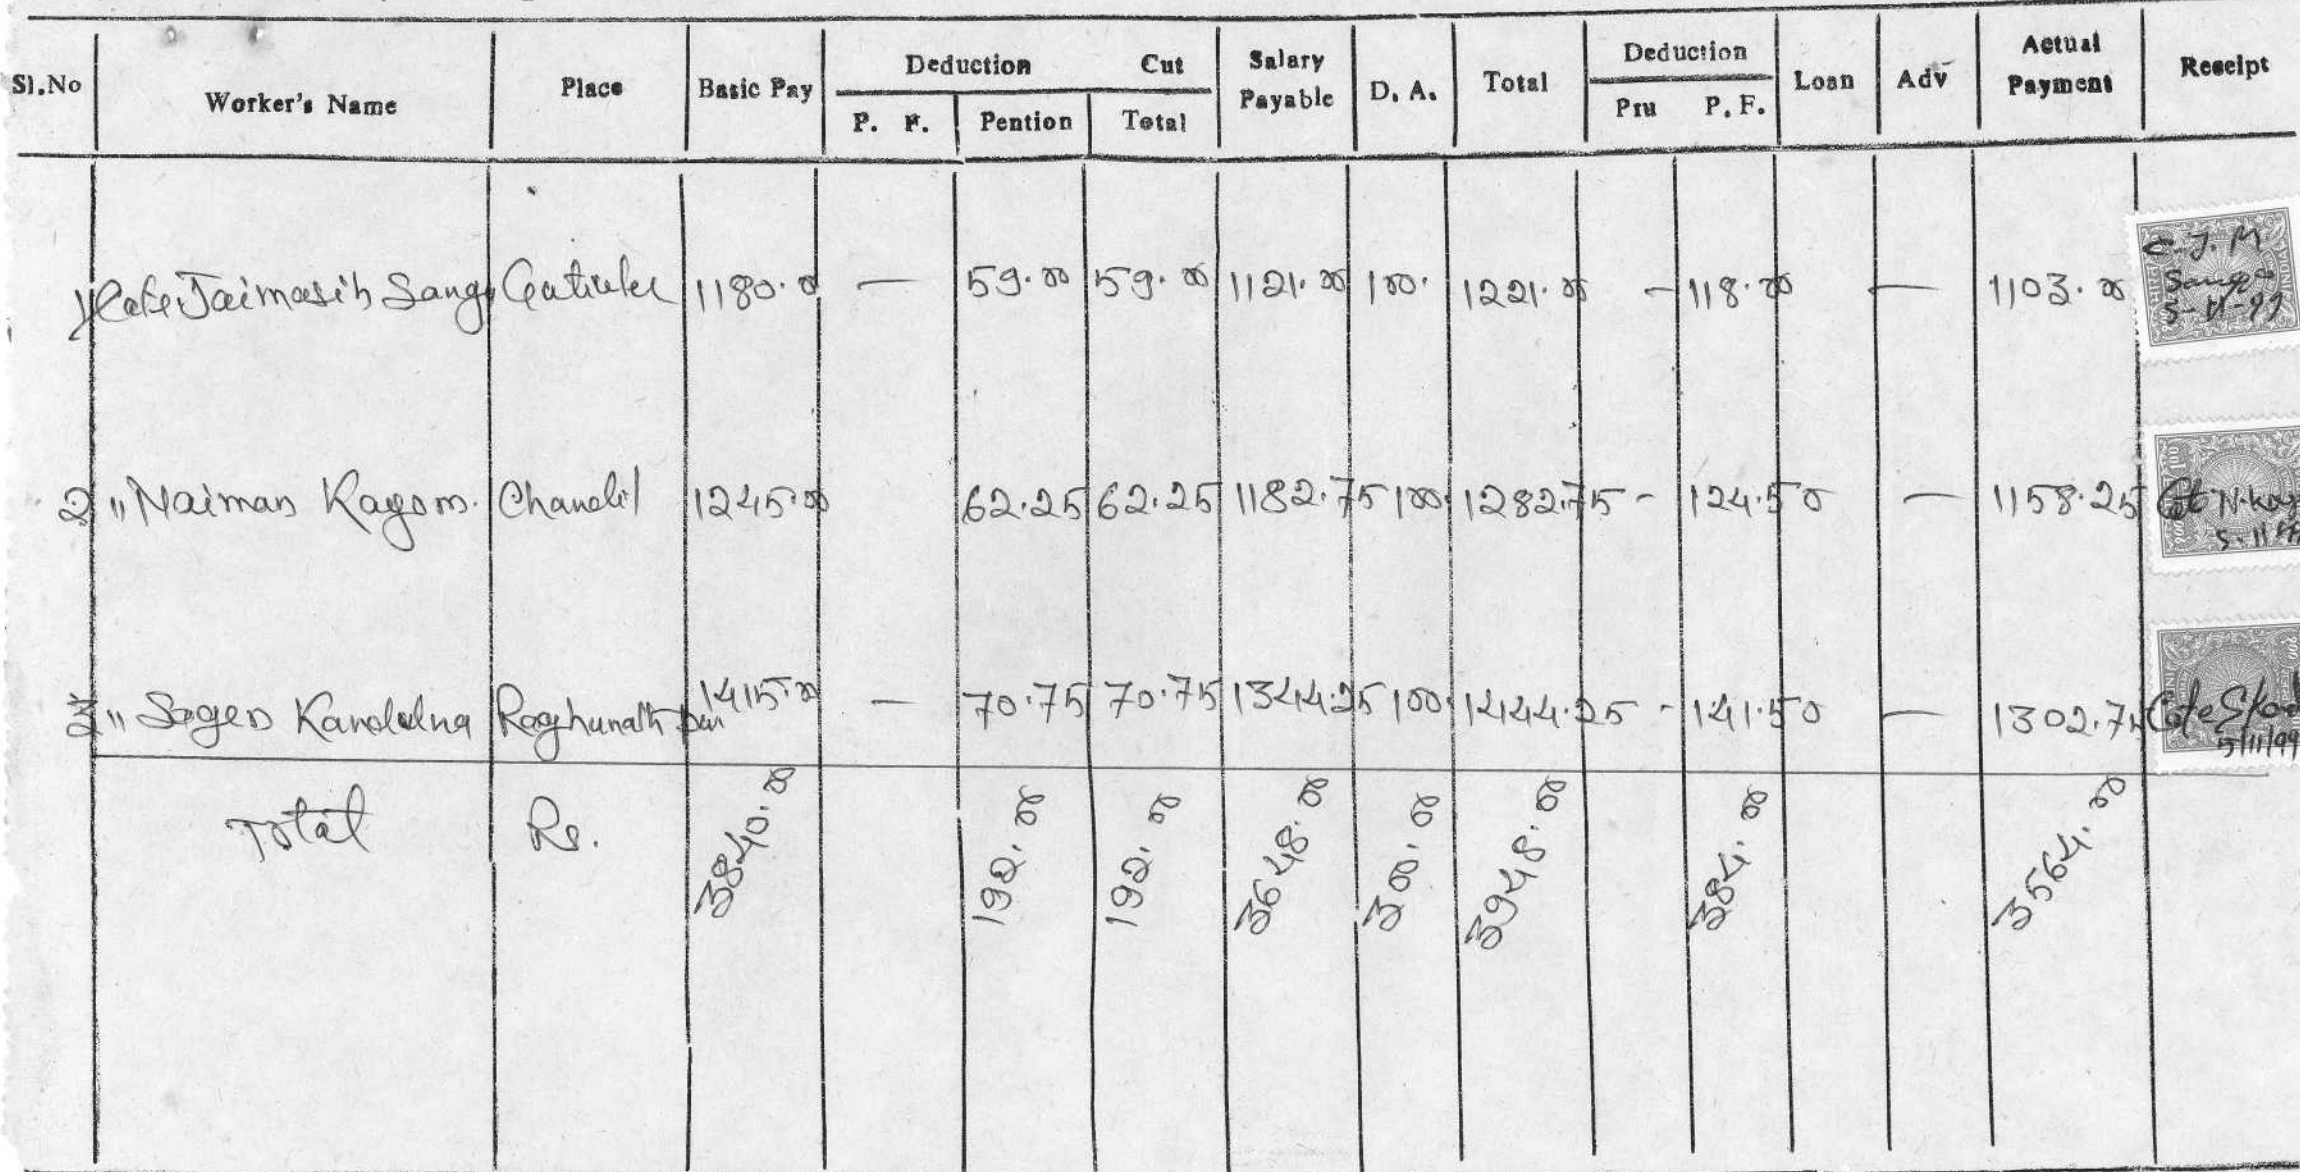 Sl.No Worker's Name Place Basic Pay Deduction Cut Salary Payable D. A. Total Deduction Loan Adv Actual Payment Receipt
P. F. Pention Total Pru P. F.
1) Cate Jaimasih Sanga 1180.00 — 59.00 59.00 1121.00 100. 1221.00 - 118.00 — 1103.00 C.J.M Sanga 5-11-99
2 " Naiman Kayom. Chandil 1245.00 62.25 62.25 1182.75 100. 1282.75 - 124.50 — 1158.25 Cat N. Kay 5-11-99
3 " Sogen Kandulna Raghunathpur 1415.00 — 70.75 70.75 1344.25 100. 1444.25 - 141.50 — 1302.75 Cate 5/11/99
Total Rs. 3840.00 192.00 192.00 3648.00 300.00 3948.00 384.00 3564.00